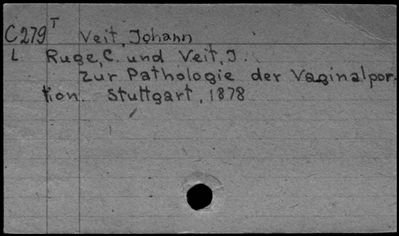 C279 T Veit, Johann
L Ruge, C. und Veit, J.
Zur Pathologie der Vaginalpor-
tion. Stuttgart, 1878